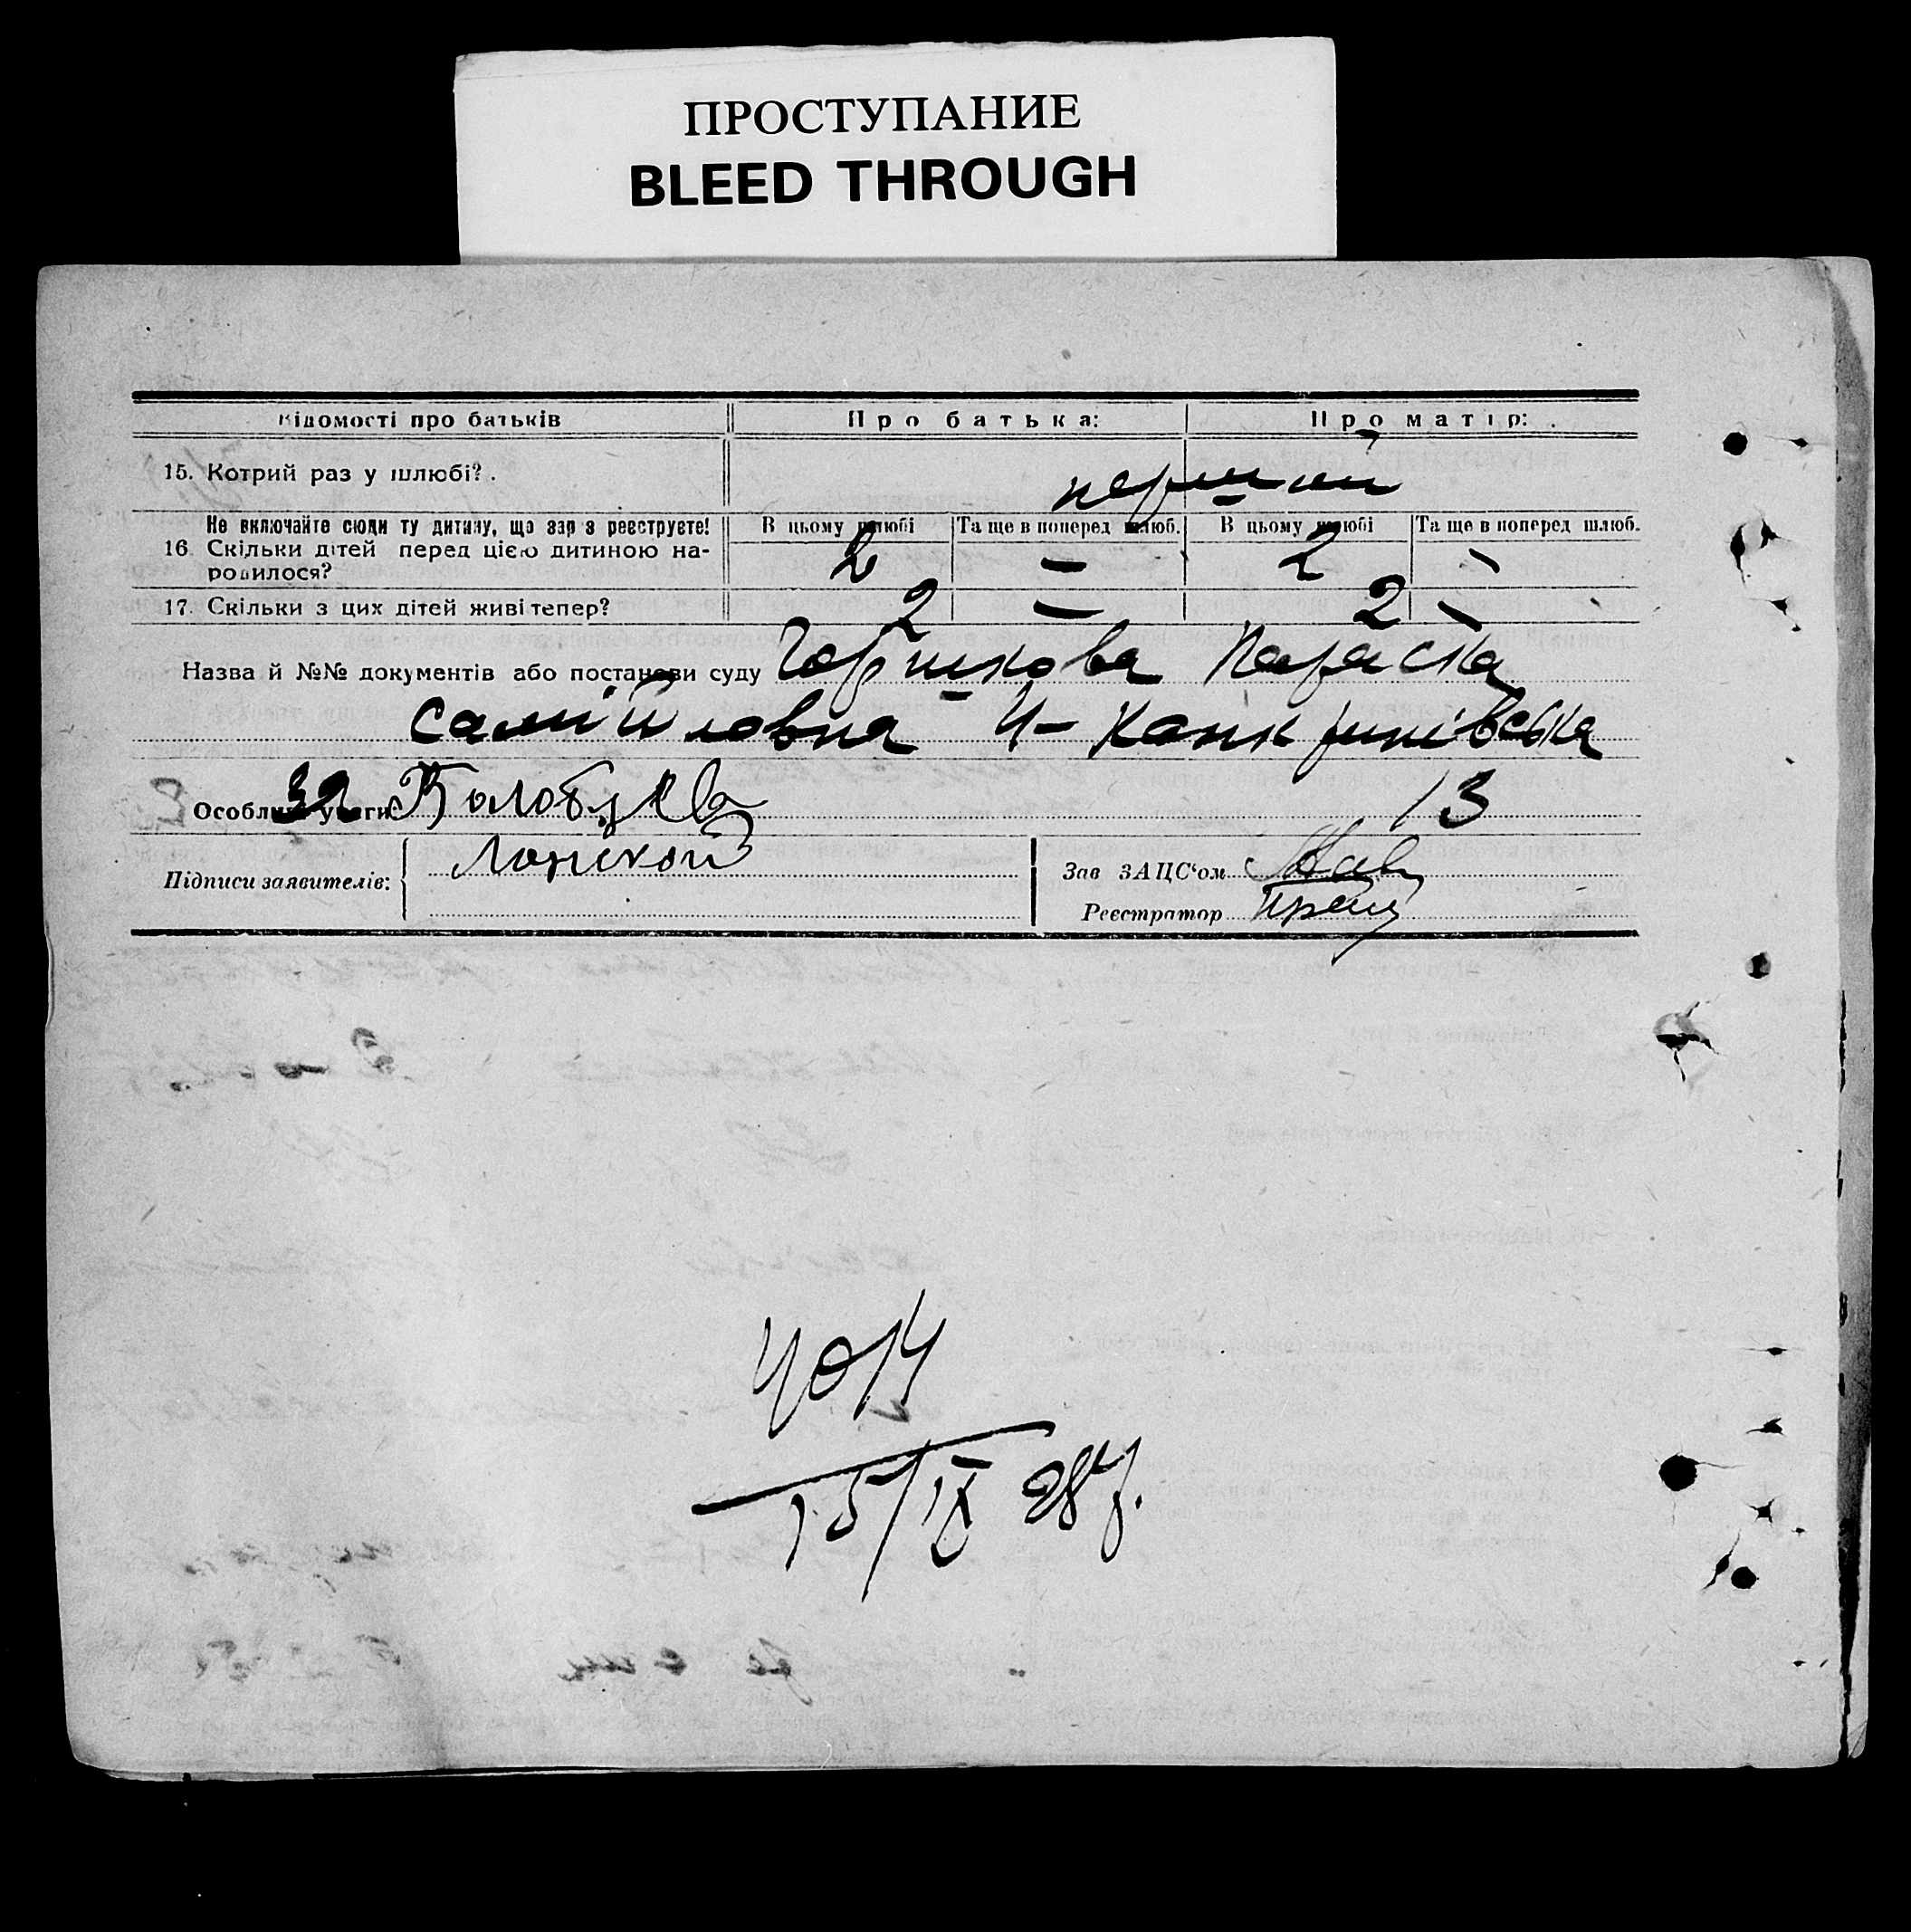 ПРОСТУПАНИЕ
BLEED THROUGH
Відомості про батьків Про батька: Про матір:
15. Котрий раз у шлюбі? перший
Не включайте сюди ту дитину, що зараз реєструєте! В цьому шлюбі Та ще в поперед шлюб. В цьому шлюбі Та ще в поперед шлюб.
16. Скільки дітей перед цією дитиною на-
родилося? 2 — 2 —
17. Скільки з цих дітей живі тепер? 2 — 2 —
Назва й №№ документів або постанови суду Горшкова Параска
Самійловна 4-
Особливі уваги: 32 13
Підписи заявителів:
Зав ЗАЦС'ом
Реєстратор
4014
15/IX 28 р.